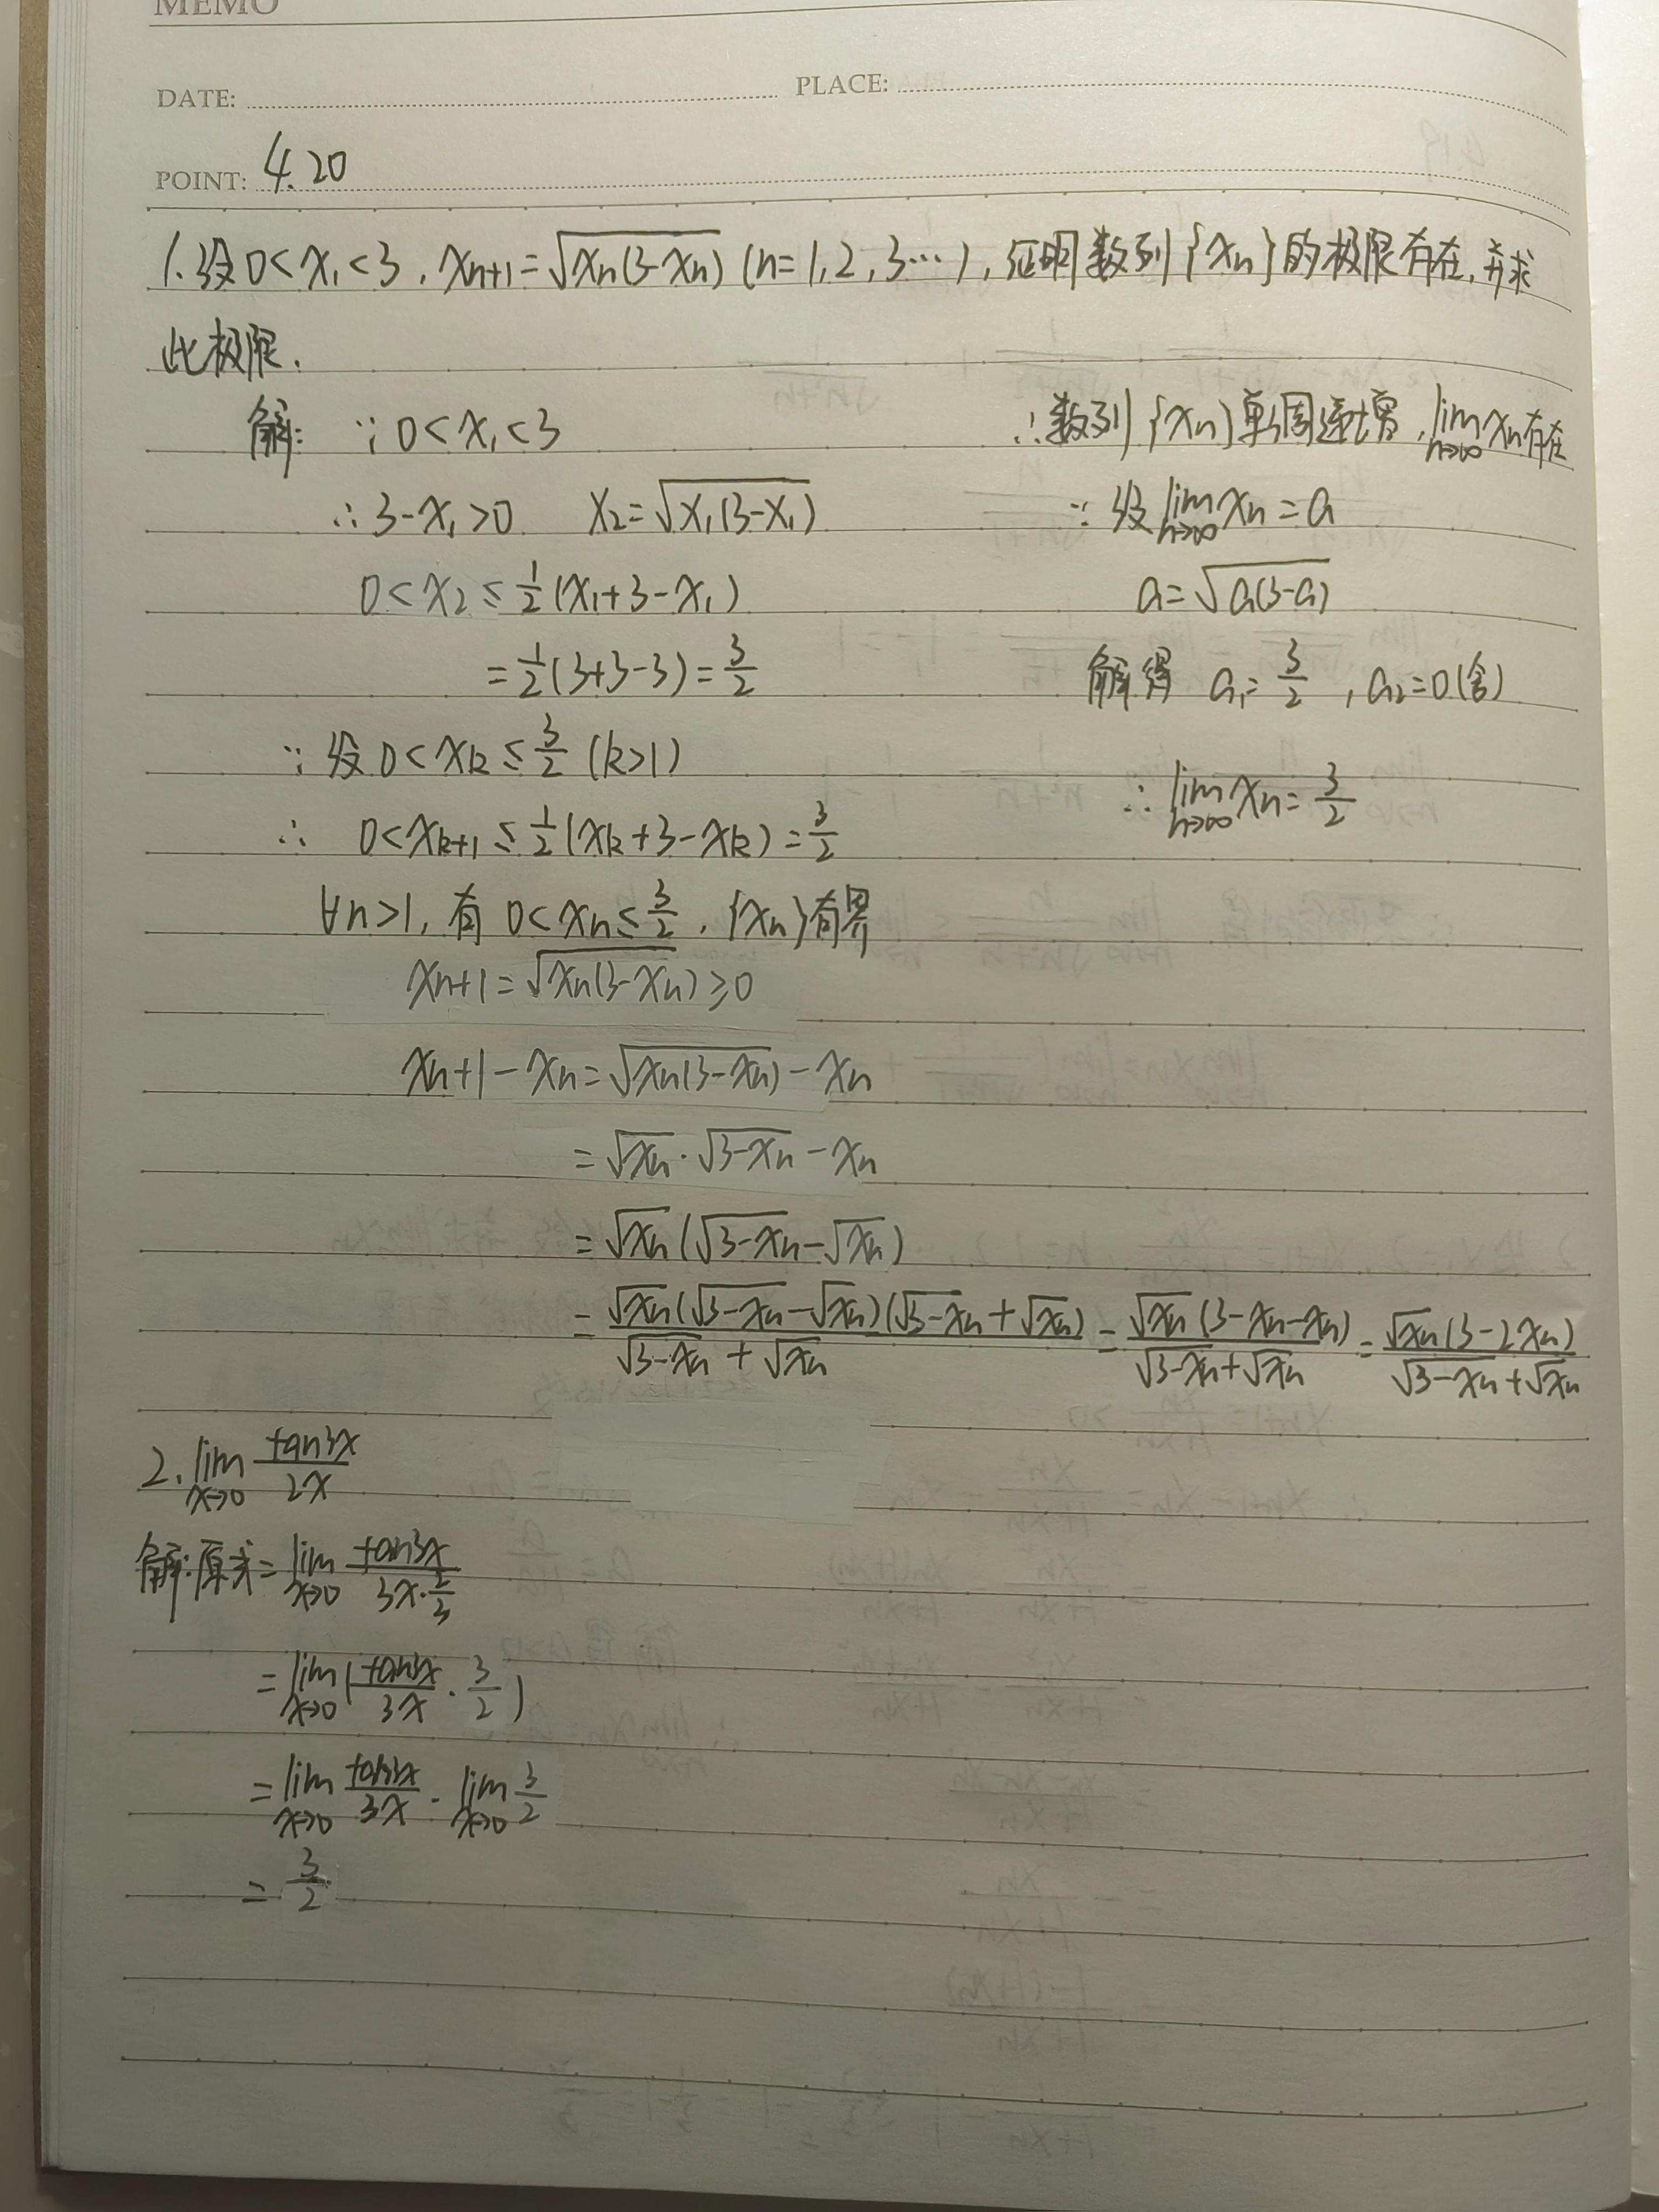 MEMO
DATE:
PLACE:
POINT: 4.20
1.设0<x₁<3,xₙ₊₁=√(xₙ(3-xₙ)) (n=1,2,3…),证明数列{xₙ}的极限存在,并求
此极限.
解: ∵0<x₁<3
∴3-x₁>0 x₂=√(x₁(3-x₁))
0<x₂≤1/2(x₁+3-x₁)
=1/2(3+3-3)=3/2
∵设0<xₖ≤3/2(k>1)
∴ 0<xₖ₊₁≤1/2(xₖ+3-xₖ)=3/2
∀n>1,有0<xₙ≤3/2,{xₙ}有界
xₙ₊₁=√(xₙ(3-xₙ))≥0
xₙ₊₁-xₙ=√(xₙ(3-xₙ))-xₙ
=√xₙ·√(3-xₙ)-xₙ
=√xₙ(√(3-xₙ)-√xₙ)
=√xₙ(√(3-xₙ)-√xₙ)(√(3-xₙ)+√xₙ)/(√(3-xₙ)+√xₙ)=√xₙ(3-xₙ-xₙ)/(√(3-xₙ)+√xₙ)=√xₙ(3-2xₙ)/(√(3-xₙ)+√xₙ)
∴数列{xₙ}单调递增,lim n→∞ xₙ存在
∵设lim n→∞ xₙ=a
a=√(a(3-a))
解得 a₁=3/2,a₂=0(舍)
∴lim n→∞ xₙ=3/2
2.lim x→0 tan3x/2x
解:原式=lim x→0 tan3x/(3x·2/3)
=lim x→0(tan3x/3x·3/2)
=lim x→0 tan3x/3x·lim x→0 3/2
=3/2